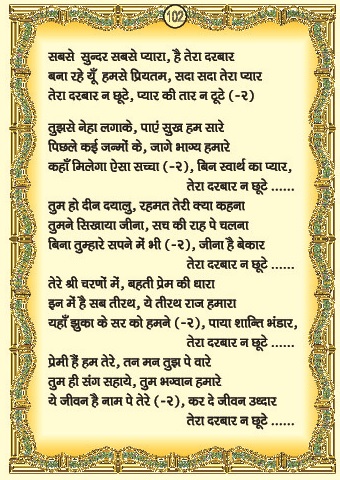 102
सबसे सुन्दर सबसे प्यारा, है तेरा दरबार
बना रहे यूँ हमसे प्रियतम, सदा सदा तेरा प्यार
तेरा दरबार न छूटे, प्यार की तार न टूटे (-२)
तुझसे नेहा लगाके, पाएं सुख हम सारे
पिछले कई जन्मों के, जागे भाग्य हमारे
कहाँ मिलेगा ऐसा सच्चा (-२), बिन स्वार्थ का प्यार,
तेरा दरबार न छूटे ......
तुम हो दीन दयालु, रहमत तेरी क्या कहना
तुमने सिखाया जीना, सच की राह पे चलना
बिना तुम्हारे सपने में भी (-२), जीना है बेकार
तेरा दरबार न छूटे ......
तेरे श्री चरणों में, बहती प्रेम की धारा
इन में है सब तीरथ, ये तीरथ राज हमारा
यहाँ झुका के सर को हमने (-२), पाया शान्ति भंडार,
तेरा दरबार न छूटे ......
प्रेमी हैं हम तेरे, तन मन तुझ पे वारे
तुम ही संग सहाये, तुम भग्वान हमारे
ये जीवन है नाम पे तेरे (-२), कर दे जीवन उध्दार
तेरा दरबार न छूटे ......